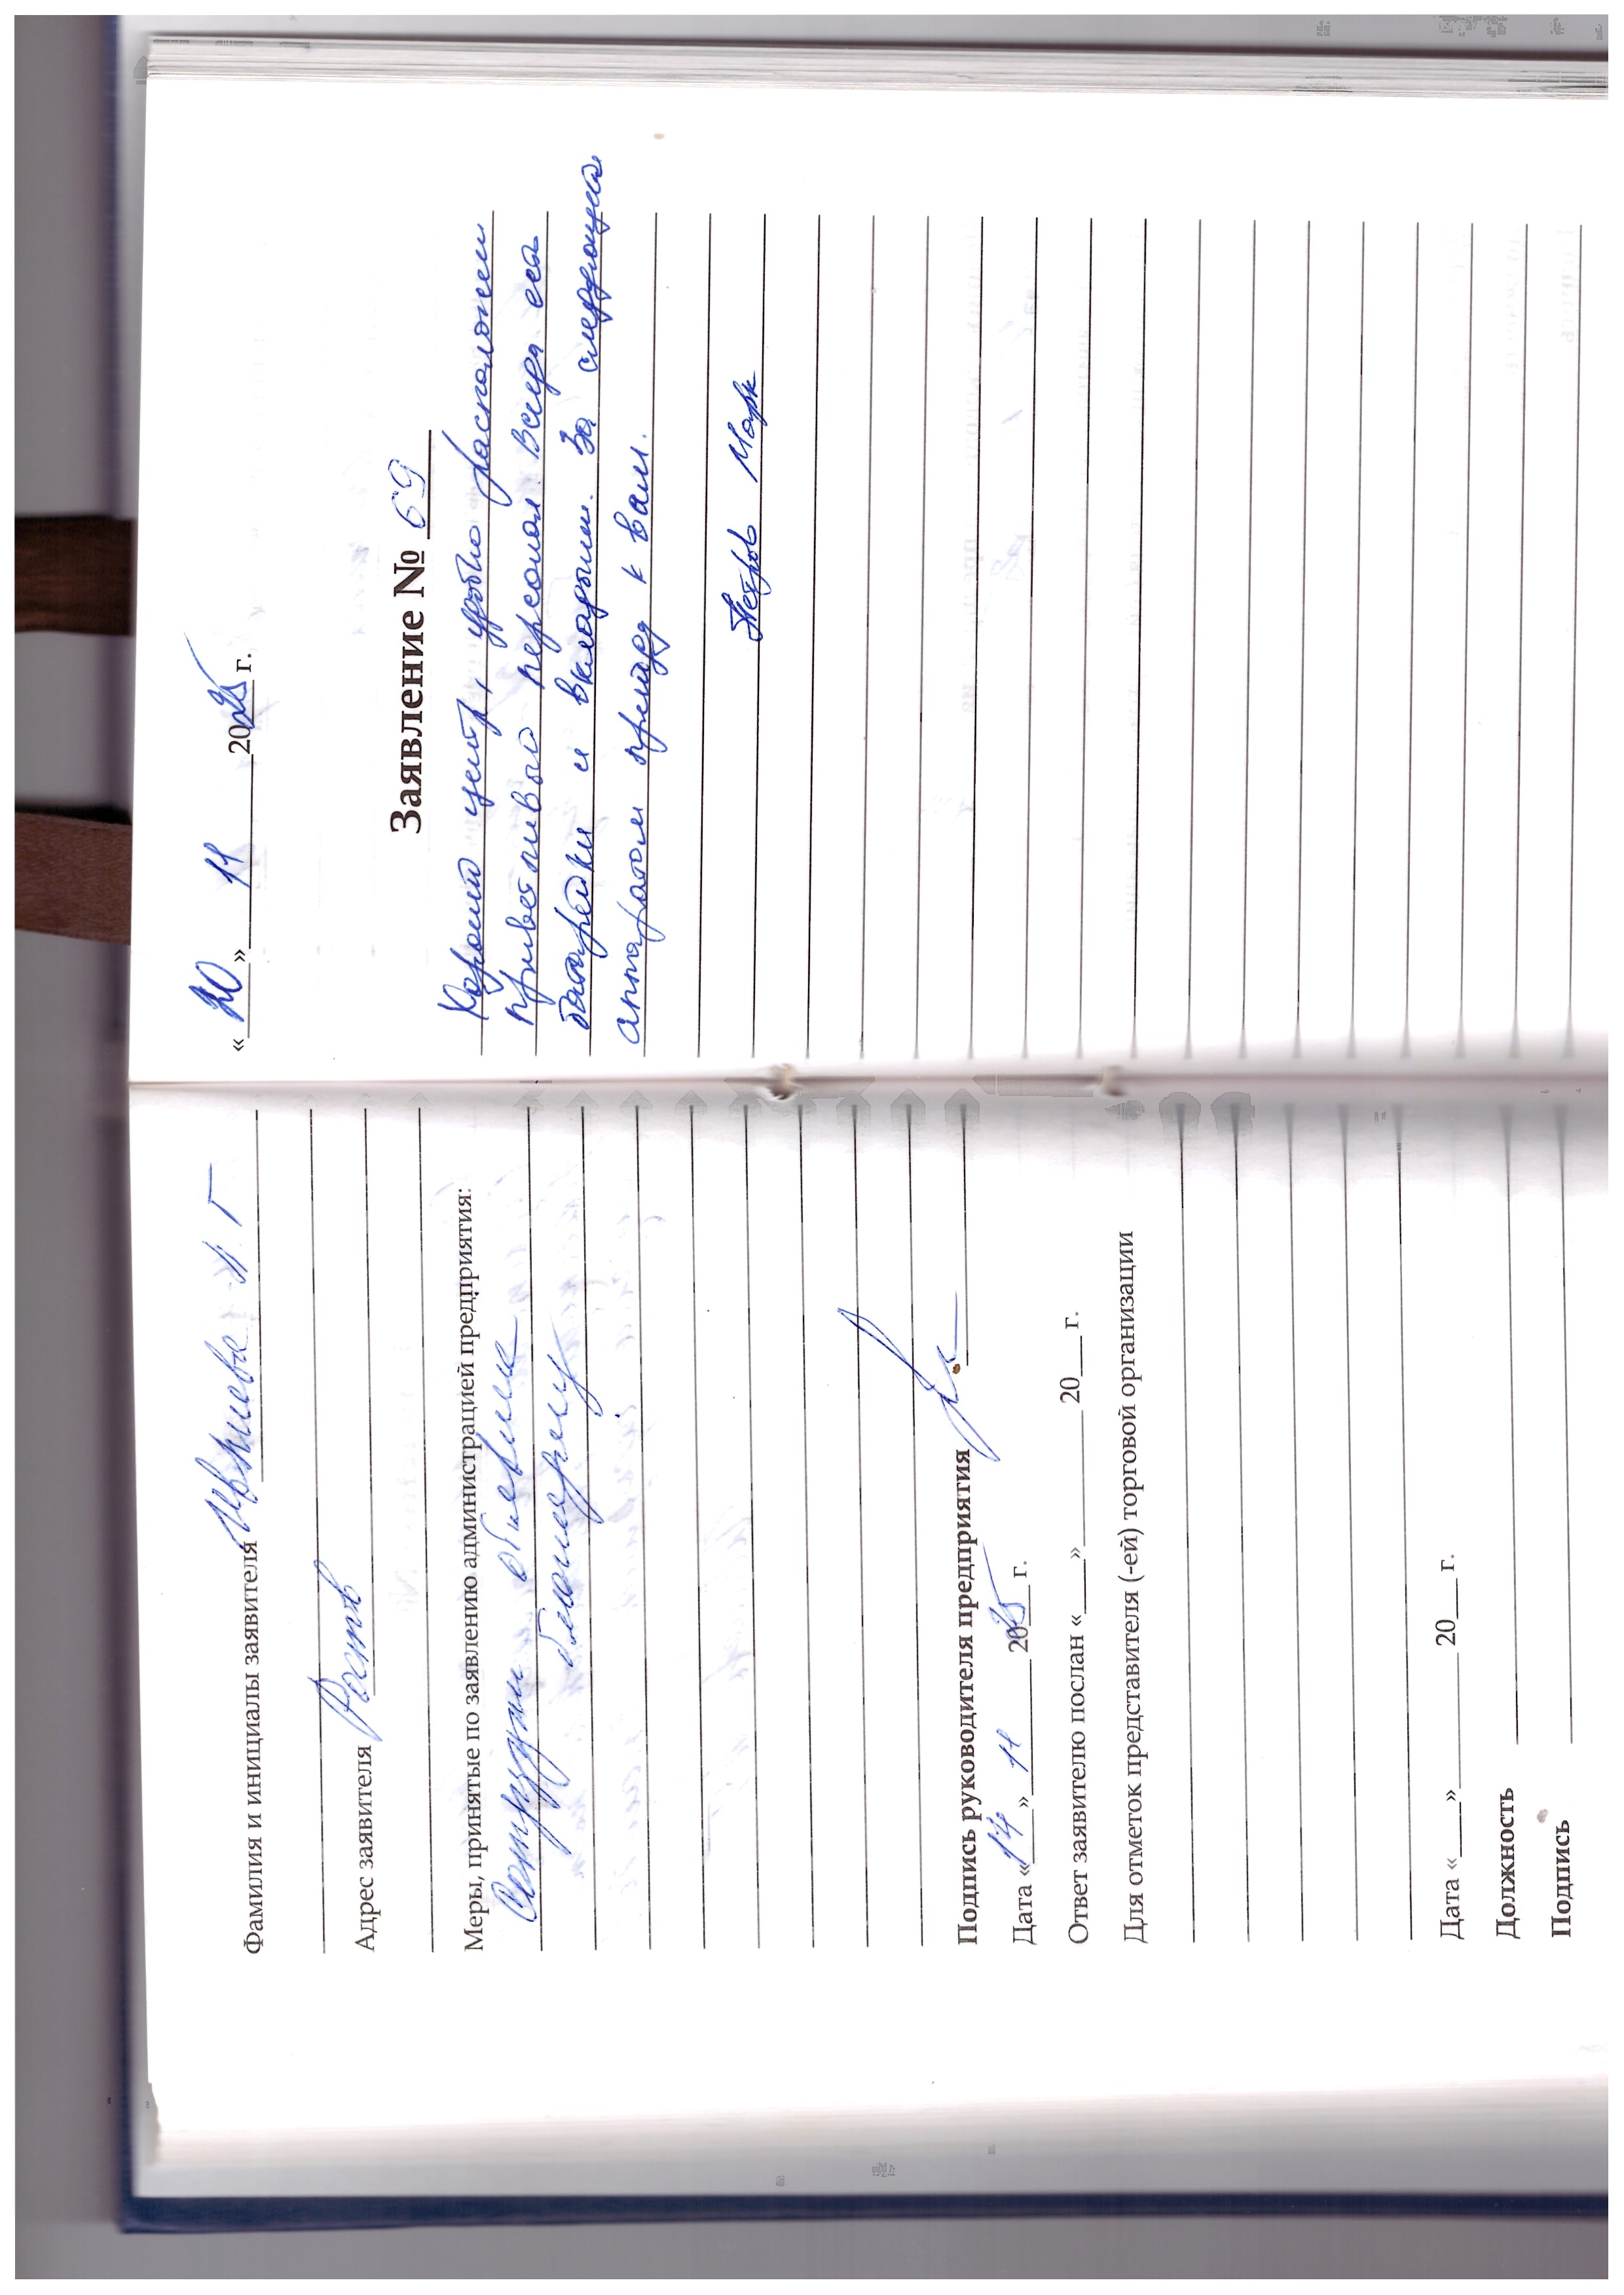 Фамилия и инициалы заявителя Ирмиева Н. Г
Адрес заявителя Ростов
Меры, принятые по заявлению администрацией предприятия:
Сотрудник объявлена
благодарность
Подпись руководителя предприятия
Дата «14» 11 2025 г.
Ответ заявителю послан «___»__________ 20__ г.
Для отметок представителя (-ей) торговой организации
Дата «___»__________ 20__ г.
Должность
Подпись
«20» 11 2025 г.
Заявление № 69
Хороший центр, удобно расположен
приветливый персонал. Всегда есть
батарейки и вкладыши. За следующим
аппаратом прийду к вам.
Петров Марк